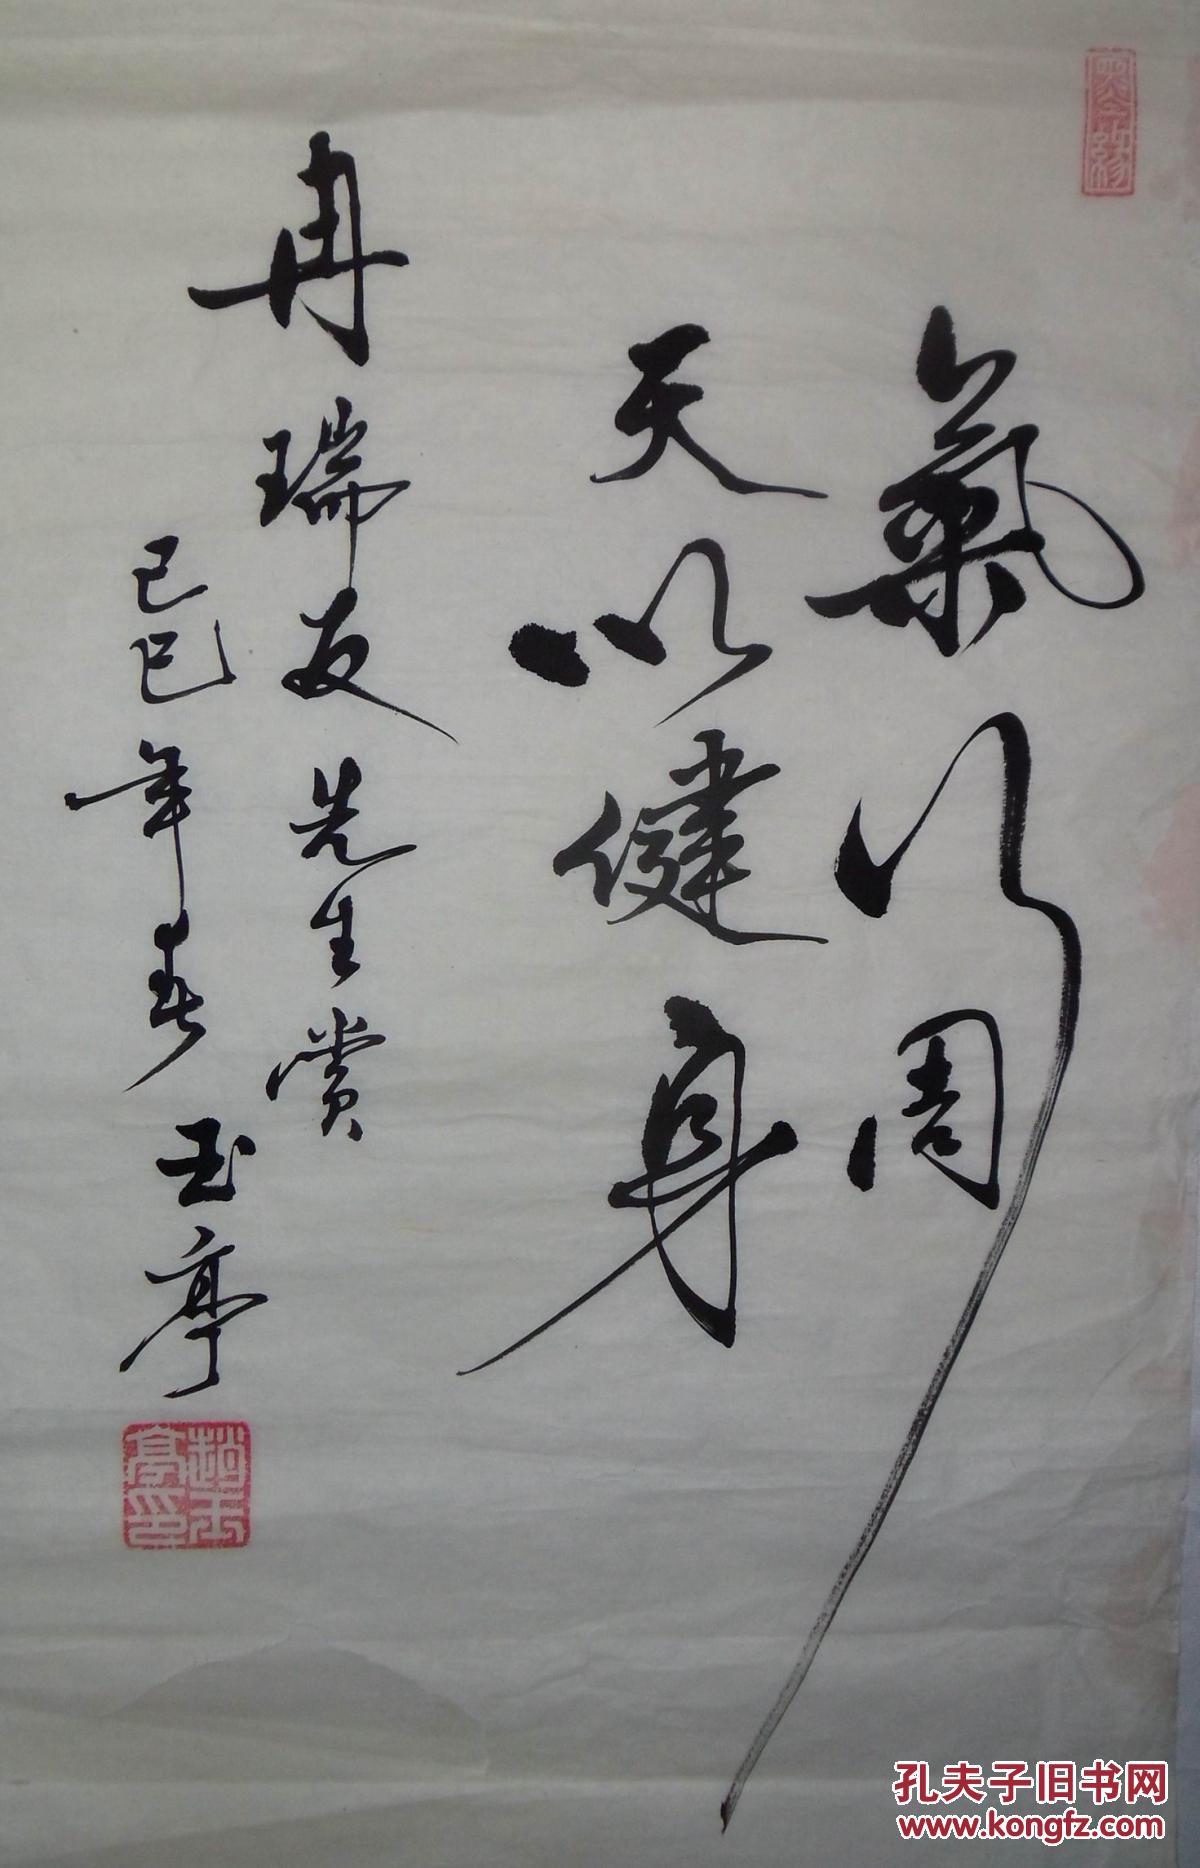 氣行周
天以健身
冉瑞友先生赏
己巳年春 玉亭
趙玉亭印
孔夫子旧书网
www.kongfz.com